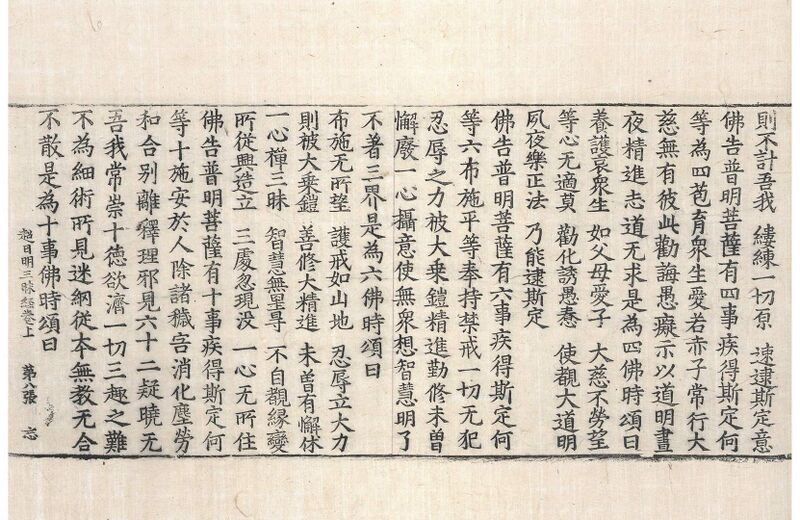 則不計吾我　縷練一切原　速逮斯定意
佛告普明菩薩有四事疾得斯定何
等為四苞育衆生愛若赤子常行大
慈無有彼此勸誨愚癡示以道明晝
夜精進志道无求是為四佛時頌曰
養護哀衆生　如父母愛子　大慈不勞望
等心无適莫　勸化誘愚惷　使觀大道明
夙夜樂正法　乃能逮斯定
佛告普明菩薩有六事疾得斯定何
等六布施平等奉持禁戒一切无犯
忍辱之力被大乘鎧精進勤修未曾
懈廢一心攝意使無衆想智慧明了
不著三界是為六佛時頌曰
布施无所望　護戒如山地　忍辱立大力
則被大乘鎧　善修大精進　未曾有懈休
一心禪三昧　智慧無罣㝵　不自觀縁變
所從興造立　三處忽現没　一心无所住
佛告普明菩薩有十事疾得斯定何
等十施安於人除諸穢害消化塵勞
和合別離釋理邪見六十二疑曉无
吾我常崇十德欲濟一切三趣之難
不為細術所見迷網從本無教无合
不散是為十事佛時頌曰
超日明三昧經卷上　第八張　忘